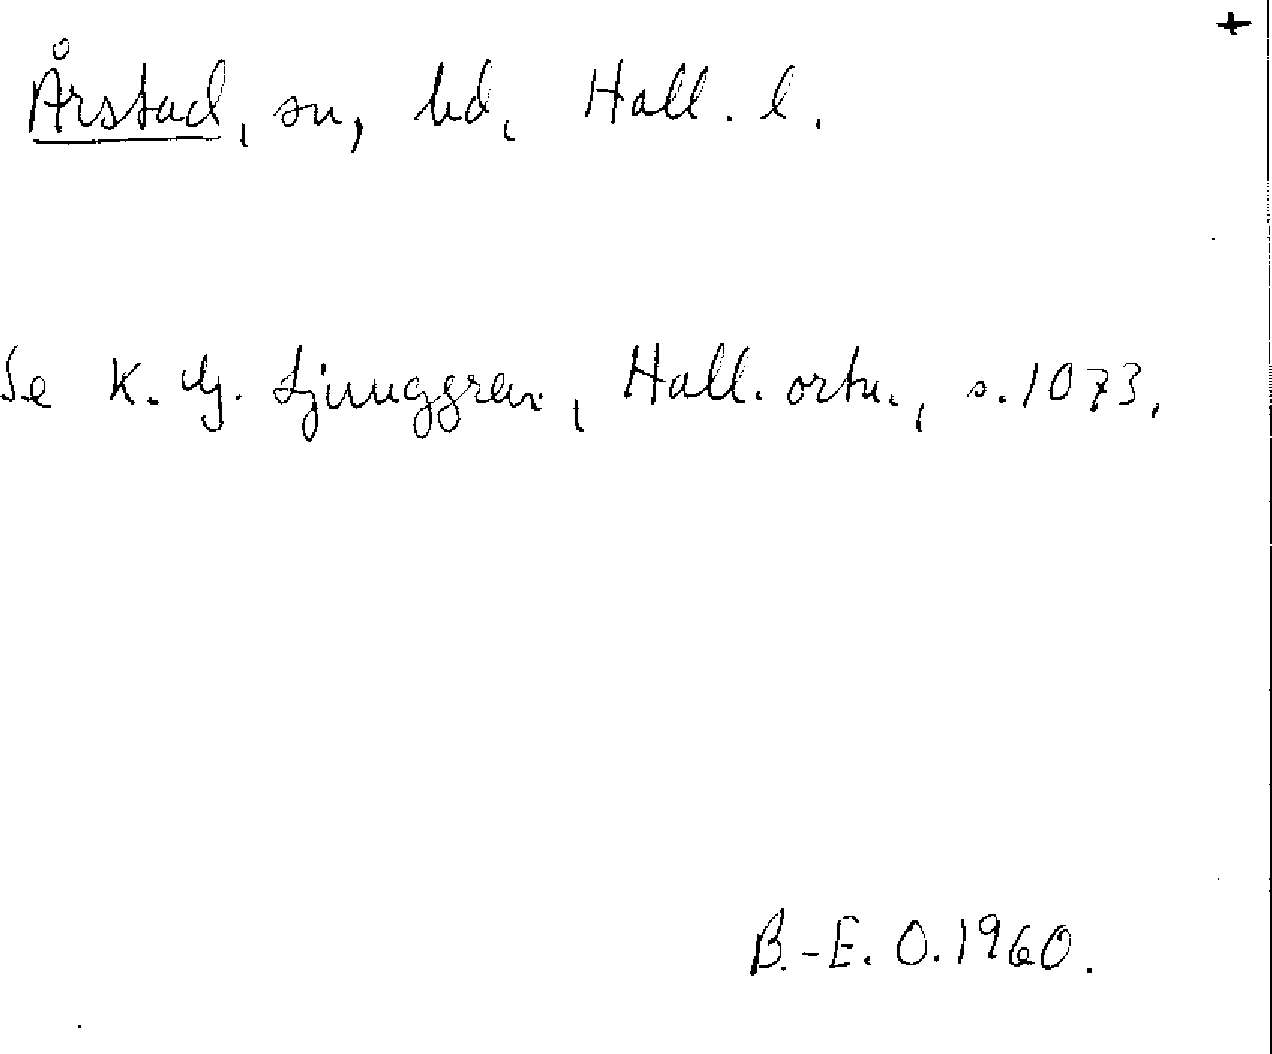 +
Årstad, sn, hd, Hall. l.
Se K. G. Ljunggren, Hall. ortn., s. 1073.
B.-E. O. 1960.